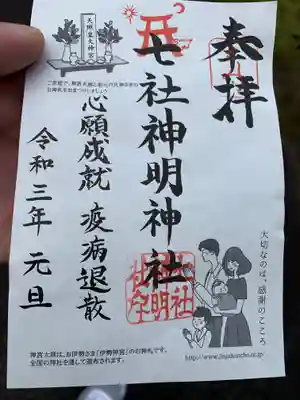 奉拝
七社神明神社
心願成就 疫病退散
令和三年 元旦
天照皇大神宮
大切なのは、感謝のこころ
http://www.jinjahoncho.or.jp
神宮大麻は、お伊勢さま「伊勢神宮」のお神札です。
全国の神社を通して頒布されます。